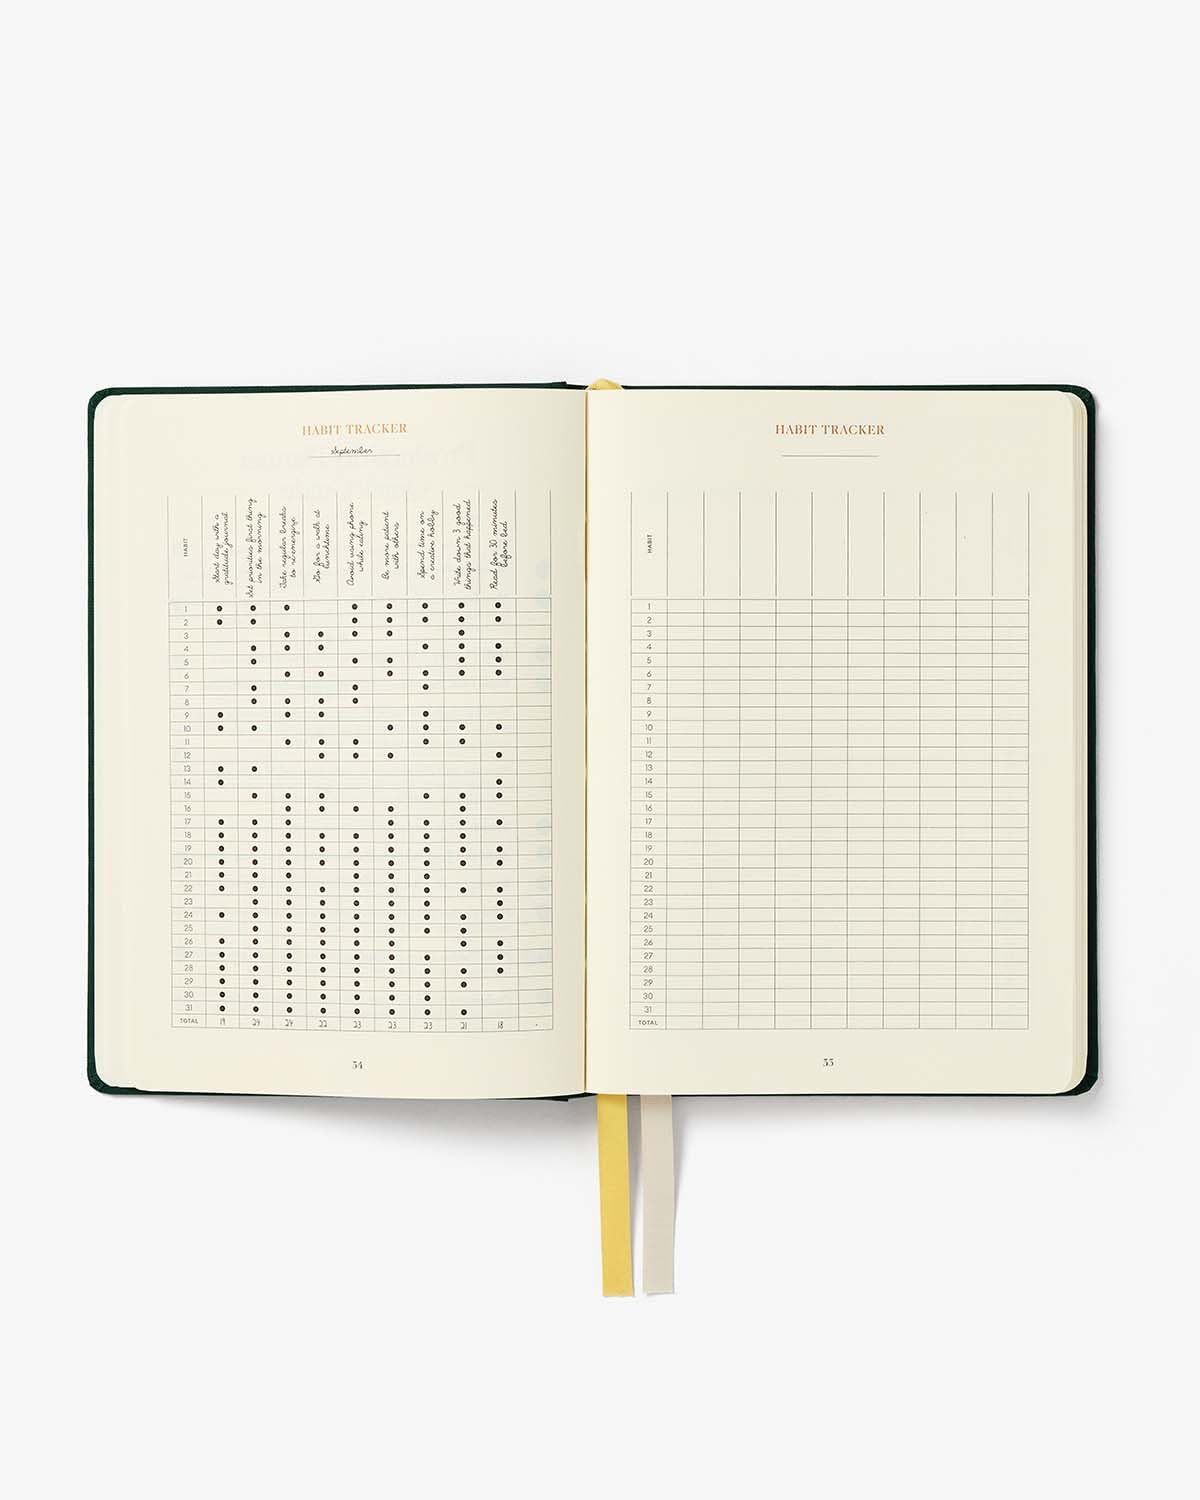 HABIT TRACKER
September
HABIT
Start day with a
gratitude journal
Set priorities first thing
in the morning
Take regular breaks
to re-energize
Go for a walk at
lunchtime
Avoid using phone
while eating
Be more patient
with others
Spend time on
a creative hobby
Write down 3 good
things that happened
Read for 30 minutes
before bed
1
2
3
4
5
6
7
8
9
10
11
12
13
14
15
16
17
18
19
20
21
22
23
24
25
26
27
28
29
30
31
TOTAL 19 24 24 22 23 23 23 21 18
34
HABIT TRACKER
HABIT
1
2
3
4
5
6
7
8
9
10
11
12
13
14
15
16
17
18
19
20
21
22
23
24
25
26
27
28
29
30
31
TOTAL